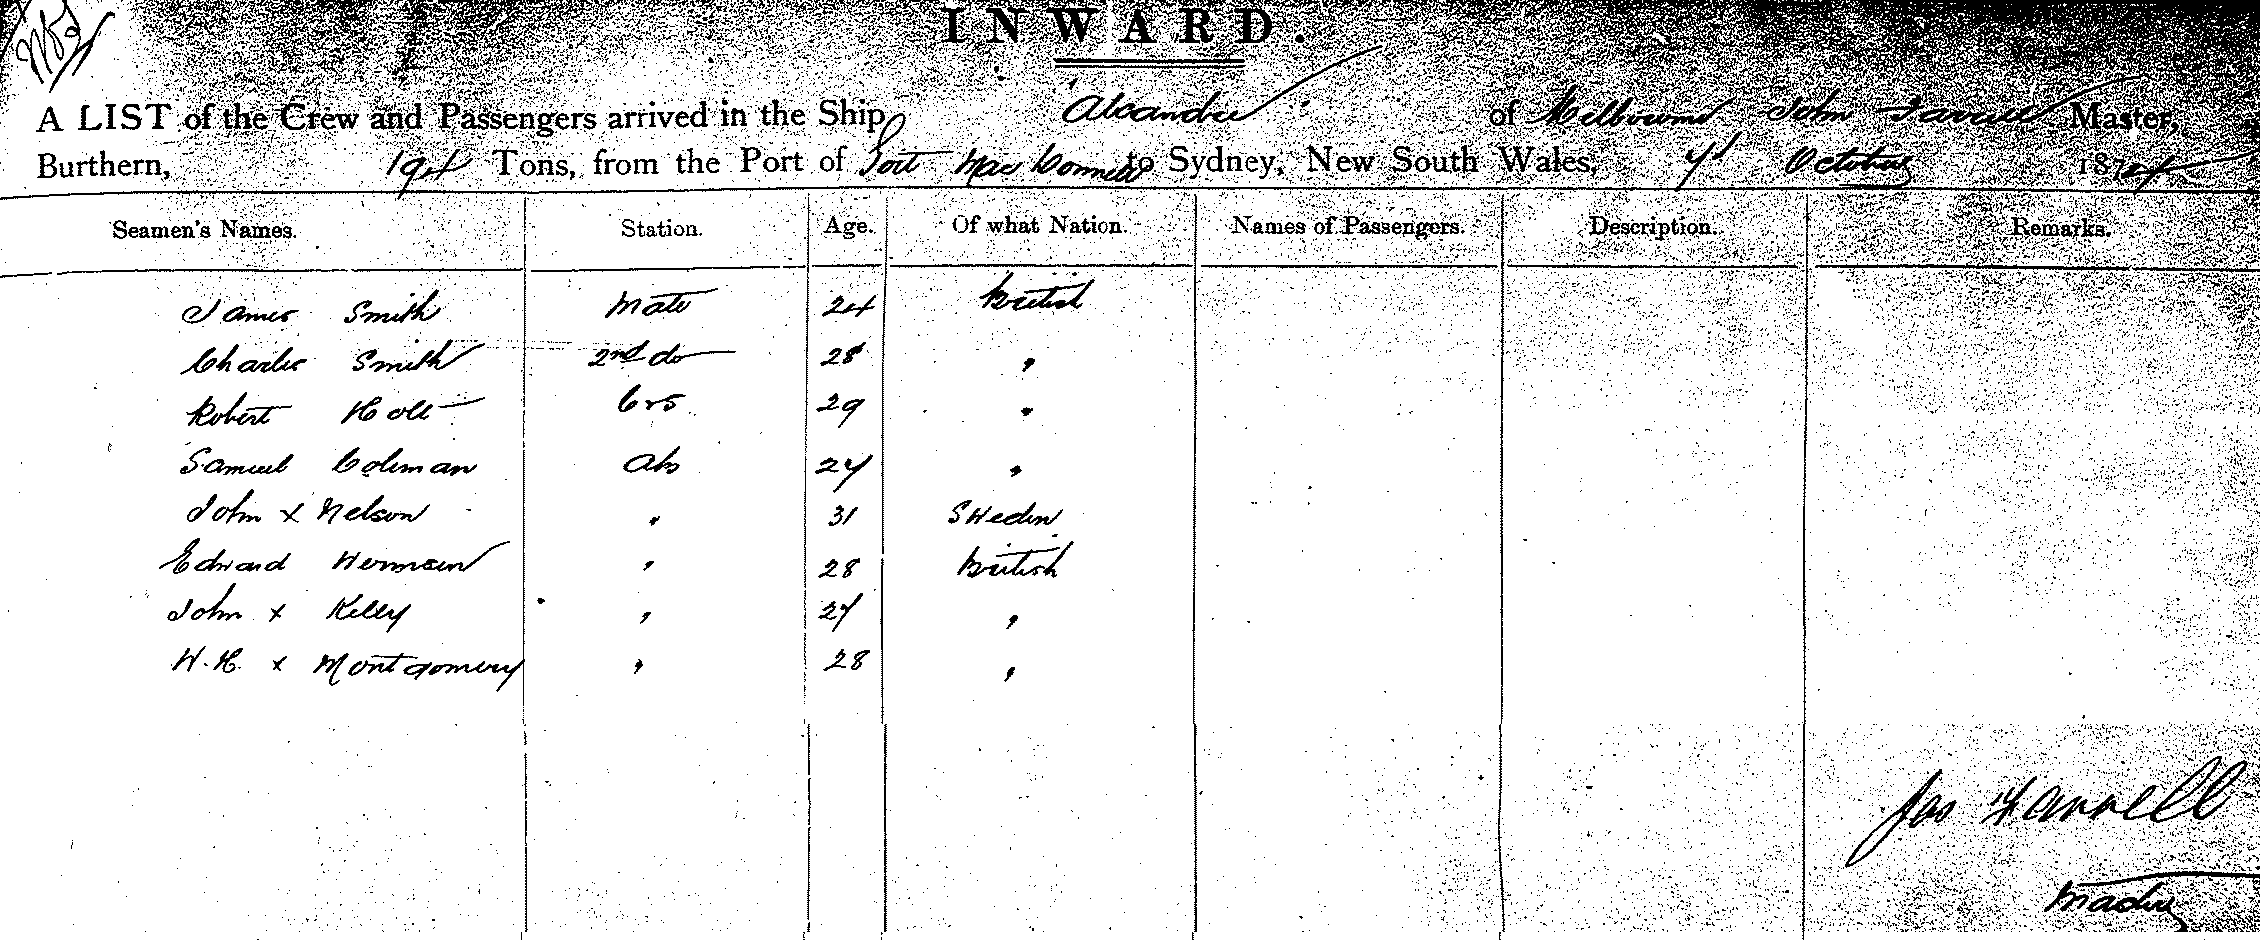 INWARD.
A LIST of the Crew and Passengers arrived in the Ship of Melbourne John Farrell Master,
Burthern, 194 Tons, from the Port of Port MacDonnell to Sydney, New South Wales, October 1874
Seamen's Names. Station. Age. Of what Nation. Names of Passengers. Description. Remarks.
James Smith Mate 24 British
Charles Smith 2nd do 28 "
Robert Holt 29 "
Samuel Coleman Ab 27 "
John x Nelson " 31 Sweden
Edward " 28 British
John x Kelly " 27 "
W. H. x Montgomery " 28 "
Jas Farrell
Master